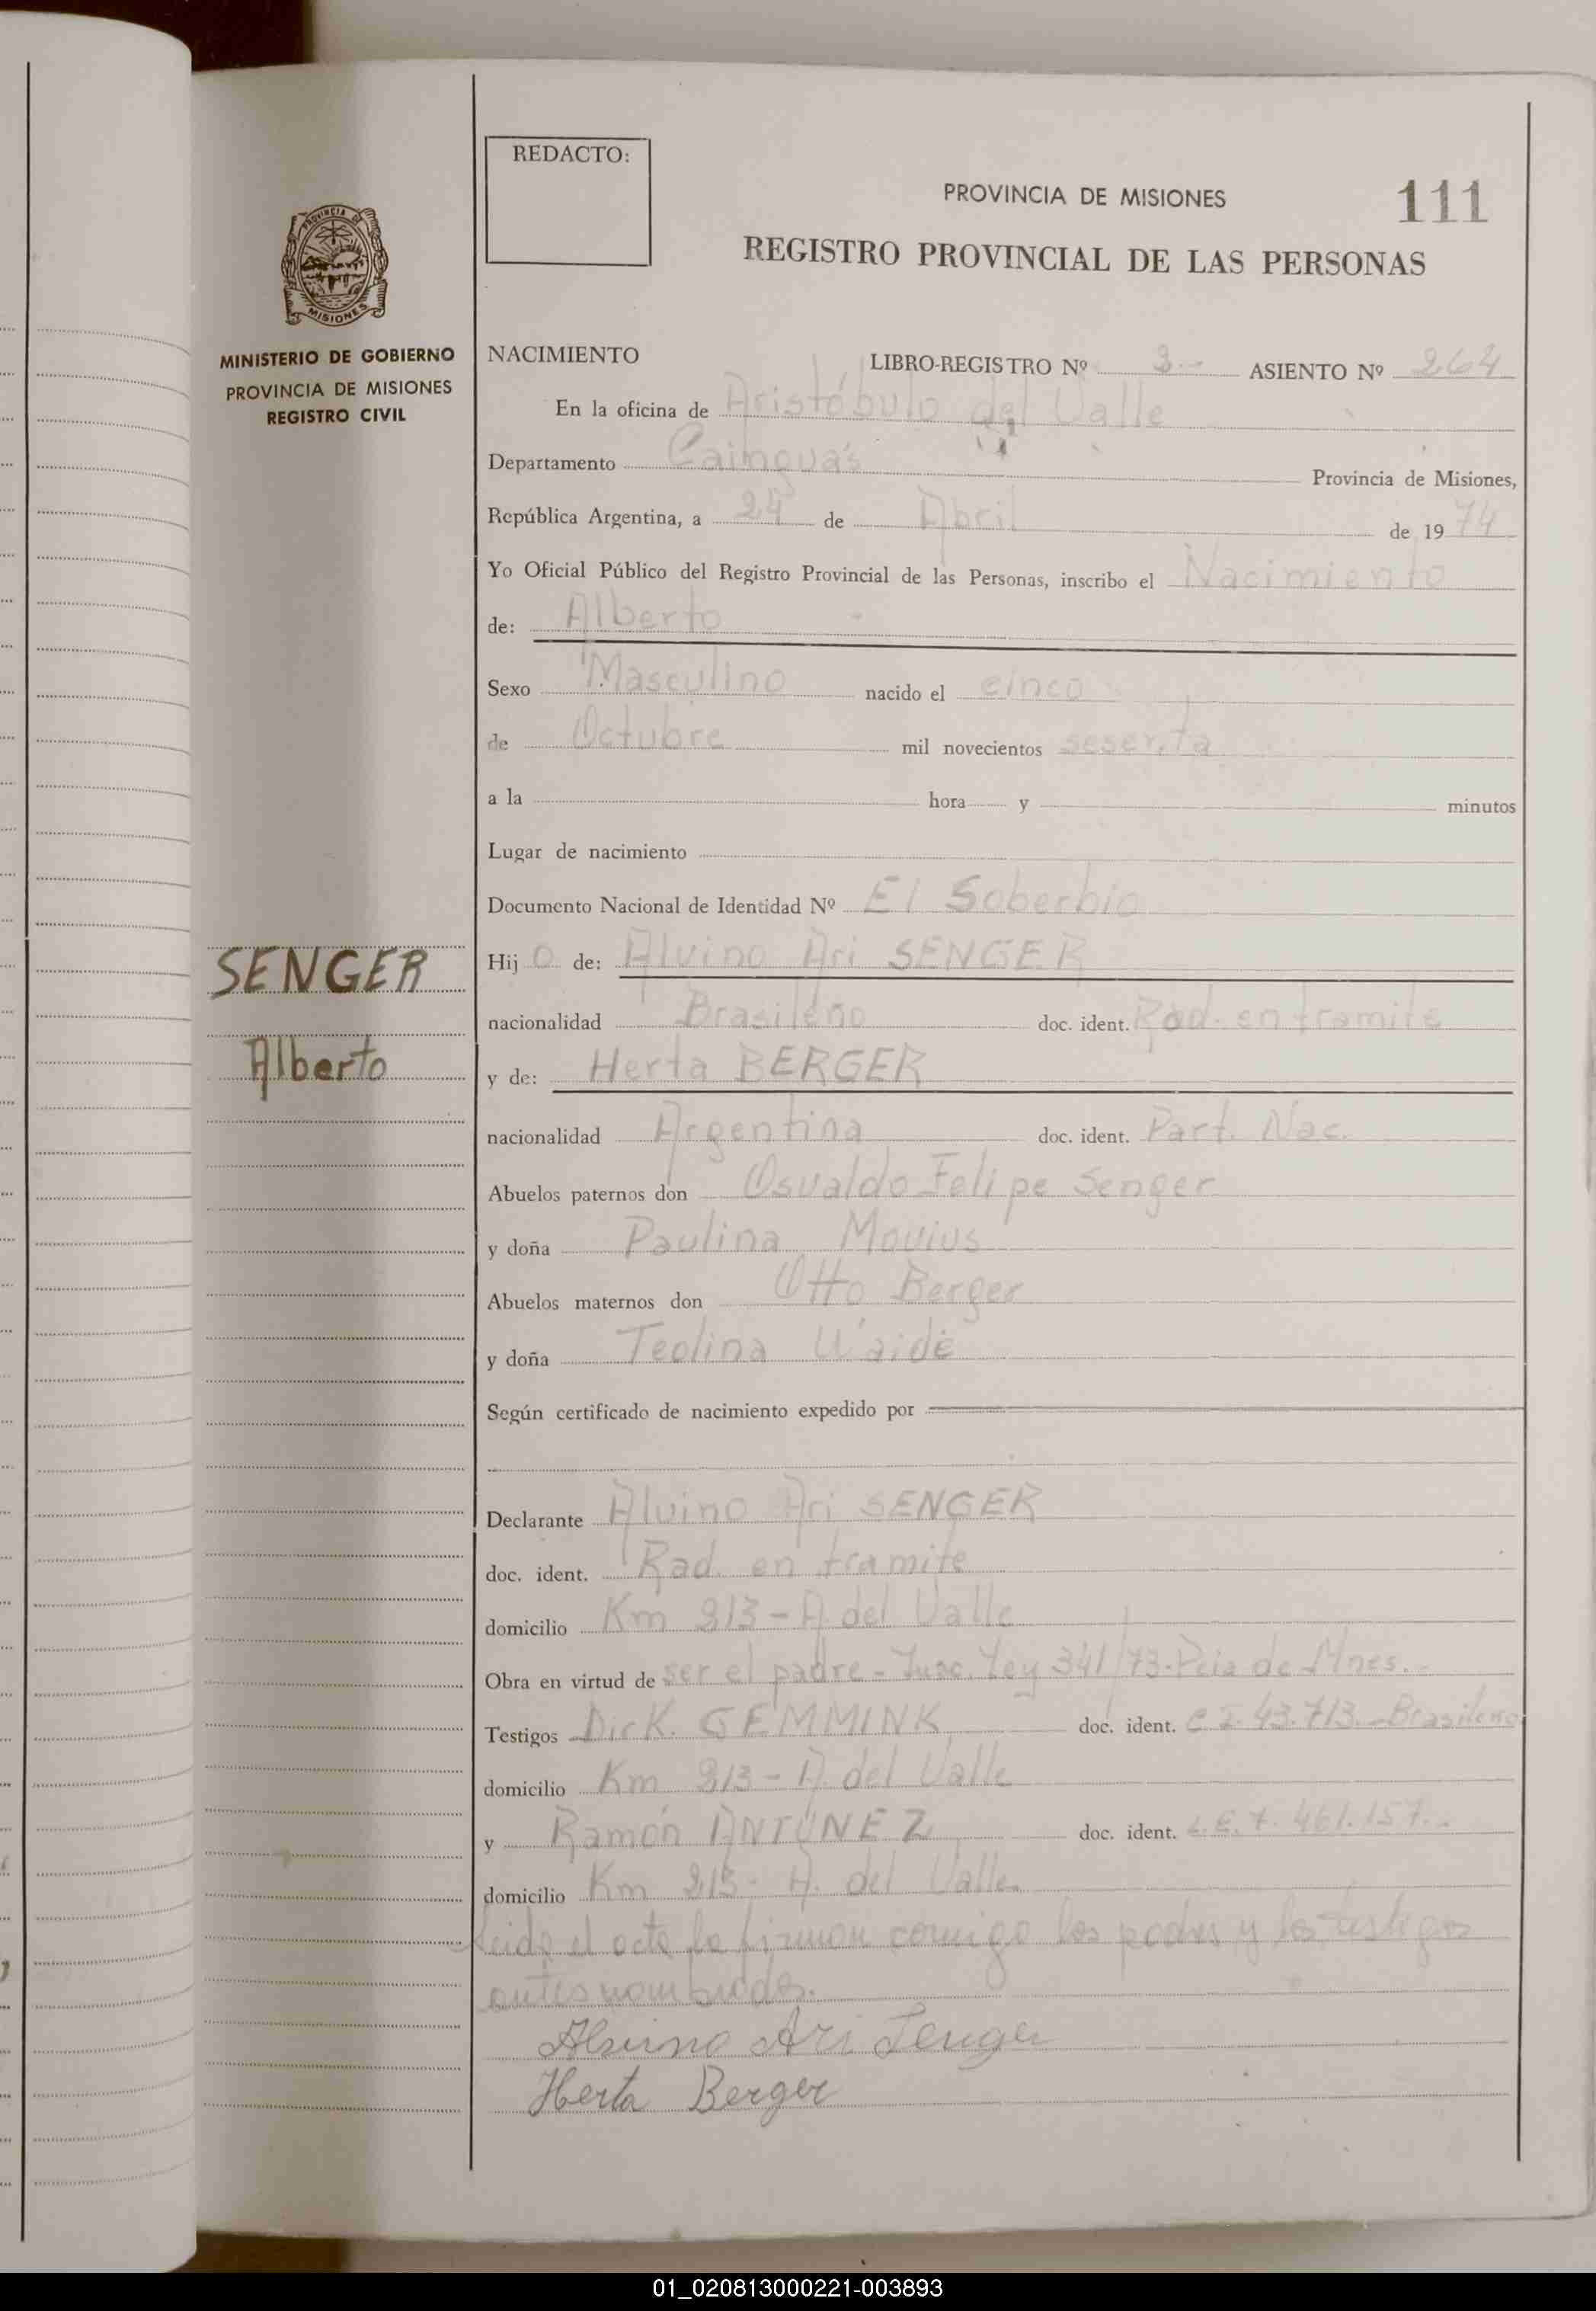 REDACTO:
PROVINCIA DE MISIONES
111
REGISTRO PROVINCIAL DE LAS PERSONAS
PROVINCIA DE
MISIONES
MINISTERIO DE GOBIERNO
PROVINCIA DE MISIONES
REGISTRO CIVIL
NACIMIENTO LIBRO-REGISTRO Nº 3.- ASIENTO Nº 264
En la oficina de Aristóbulo del Valle
Departamento Cainguás Provincia de Misiones,
República Argentina, a 24 de Abril de 1974
Yo Oficial Público del Registro Provincial de las Personas, inscribo el Nacimiento
de: Alberto
Sexo Masculino nacido el cinco
de Octubre mil novecientos sesenta
a la hora y minutos
Lugar de nacimiento
Documento Nacional de Identidad Nº El Soberbio
SENGER
Alberto
Hijo de: Alvino Ari SENGER
nacionalidad Brasileño doc. ident. Rad. en tramite
y de: Herta BERGER
nacionalidad Argentina doc. ident. Part. Nac.
Abuelos paternos don Osvaldo Felipe Senger
y doña Paulina Movius
Abuelos maternos don Otto Berger
y doña Teolina Waide
Según certificado de nacimiento expedido por
Declarante Alvino Ari SENGER
doc. ident. Rad. en tramite
domicilio Km 213 - A. del Valle
Obra en virtud de ser el padre - Insc. Ley 341/73 - Pcia de Mnes.
Testigos Dirk. GEMMINK doc. ident. C.I. 43.713.- Brasileño
domicilio Km 213 - A. del Valle
y Ramón ANTUNEZ doc. ident. L.E. 7.461.157.-
domicilio Km 213 - A. del Valle
Leida el acta la firman comigo los padres y los testigos
antes nombrados.
Alvino Ari Senger
Herta Berger
01_020813000221-003893